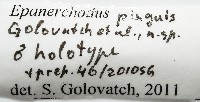 Epanerchodus pinguis
Golovatch et al., n. sp.
♂ holotype
+ prep. 46/201056
det. S. Golovatch, 2011